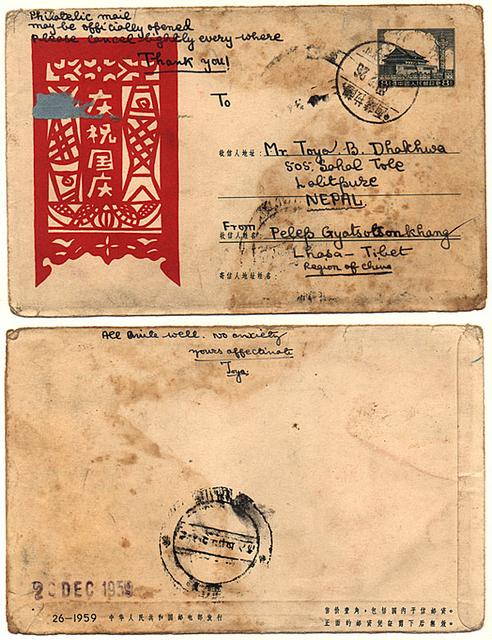 Philatelic mail
may be officially opened
please cancel lightly every where
Thank you!
庆祝国庆
To
收信人地址：
Mr Toya B. Dhakhwa
505, Sahal Tole
Lalitpure
NEPAL
From
收信人姓名：
Lhasa - Tibet
Region of China
寄信人地址姓名：
All Smile well. No anxiety
yours affectinate
Toya
DEC 1959
26-1959 中华人民共和国邮电部发行
售价壹角，包括国内平信邮资。
正面的邮资凭证剪下后无效。